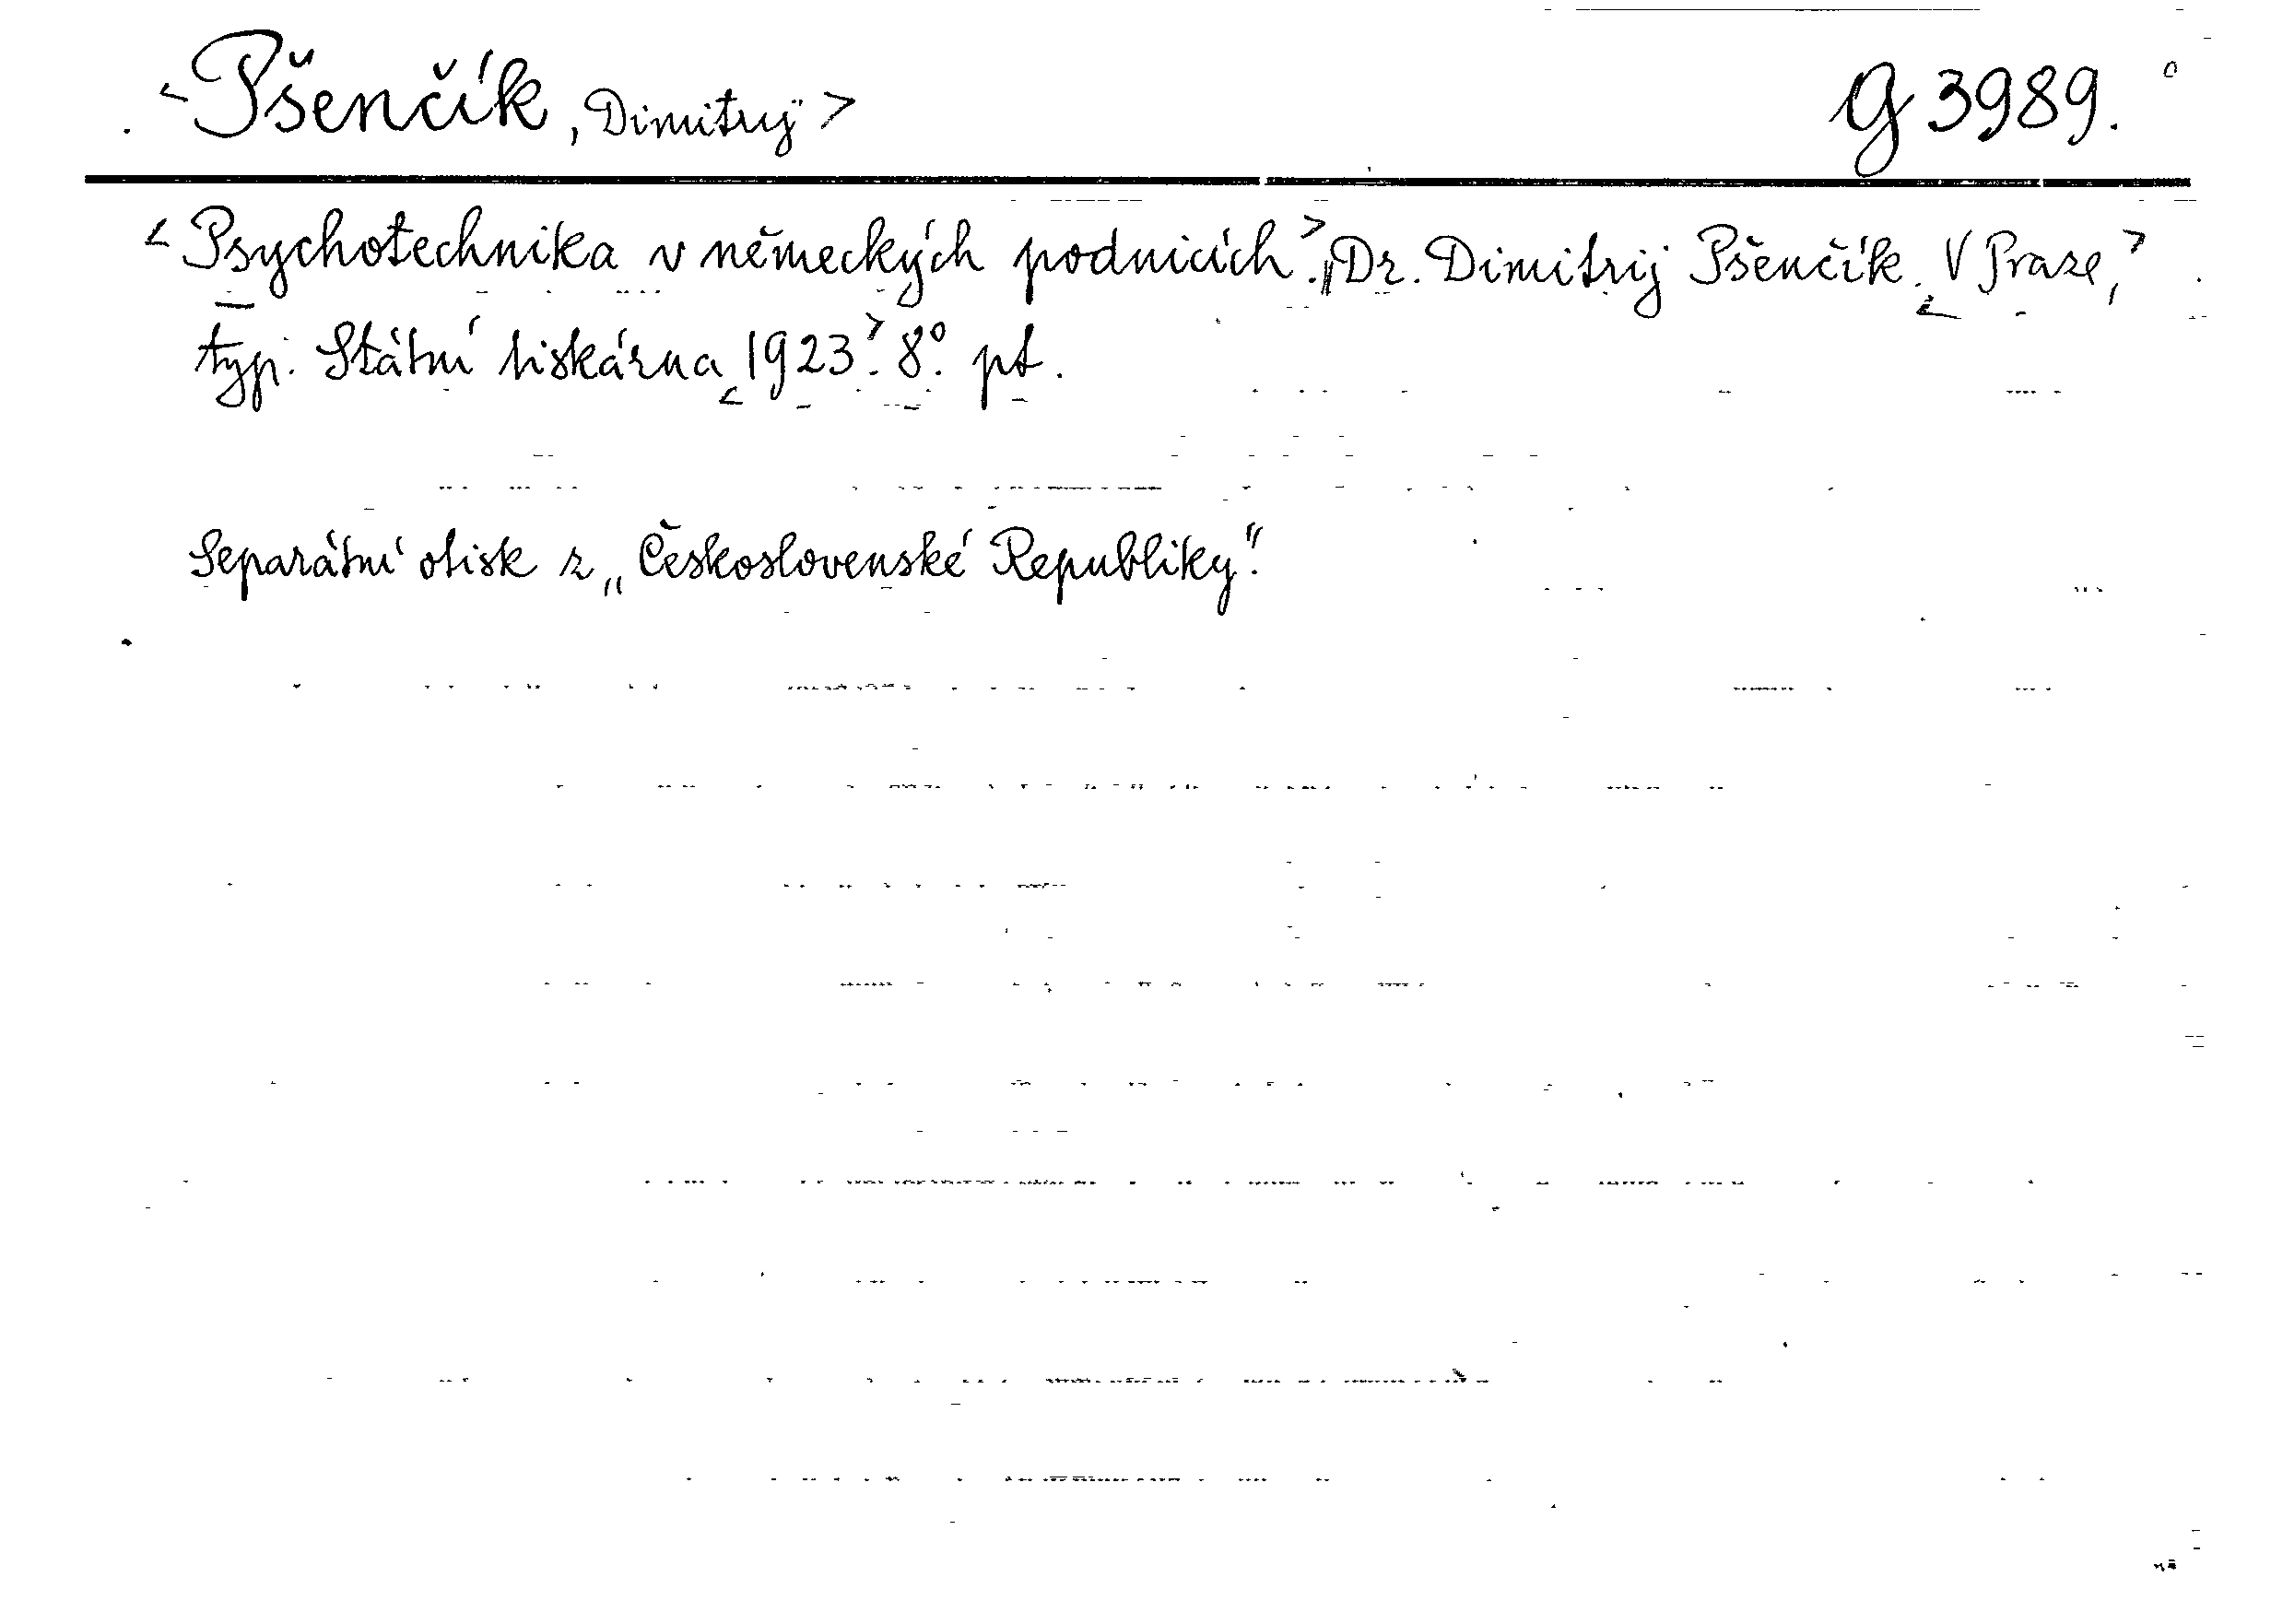 <Pšenčík, Dimitrij> G 3989.
<Psychotechnika v německých podnicích.> Dr. Dimitrij Pšenčík. <V Praze,>
typ. Státní tiskárna <1923>. 8°. pt.
Separátní otisk z „Československé Republiky".